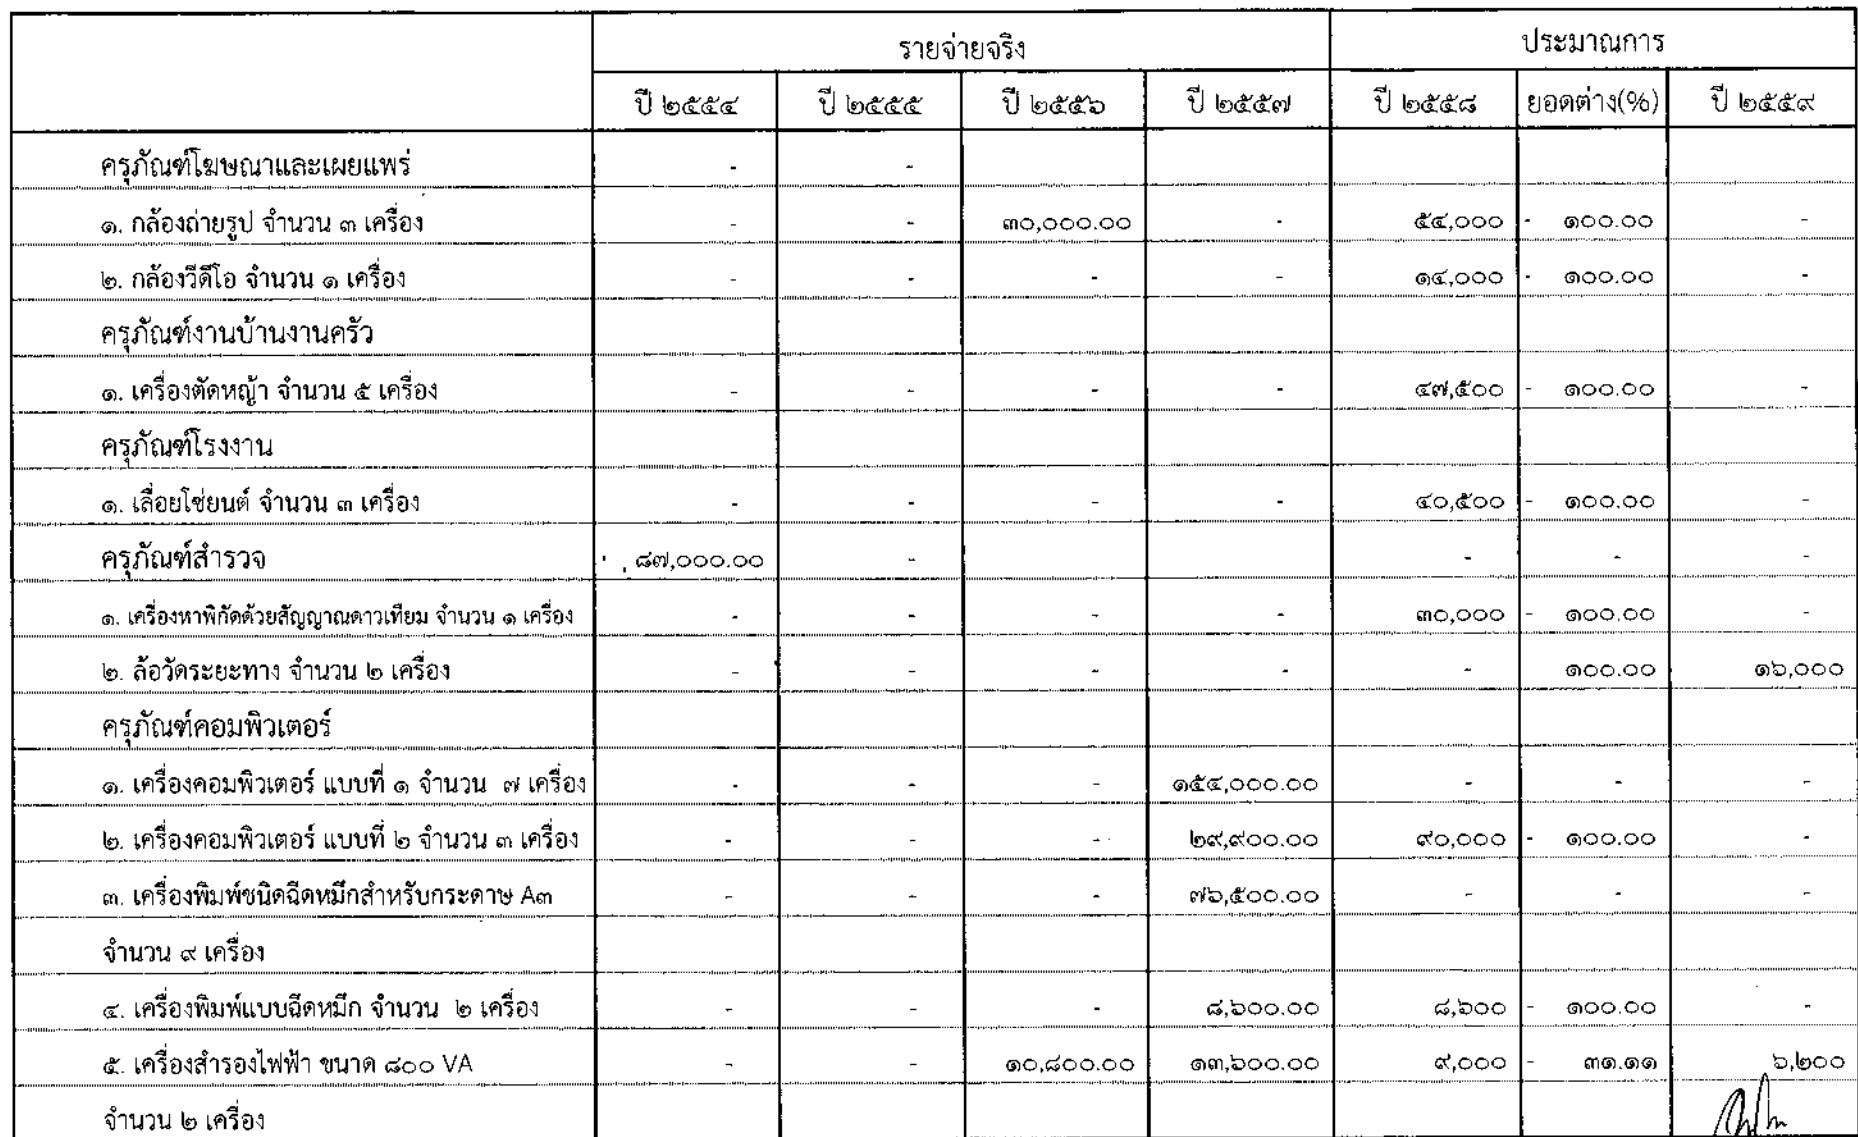 รายจ่ายจริง ประมาณการ
ปี ๒๕๕๔ ปี ๒๕๕๕ ปี ๒๕๕๖ ปี ๒๕๕๗ ปี ๒๕๕๘ ยอดต่าง(%) ปี ๒๕๕๙
ครุภัณฑ์โฆษณาและเผยแพร่ - -
๑. กล้องถ่ายรูป จำนวน ๓ เครื่อง - - ๓๐,๐๐๐.๐๐ - ๕๔,๐๐๐ - ๑๐๐.๐๐ -
๒. กล้องวีดีโอ จำนวน ๑ เครื่อง - - - - ๑๔,๐๐๐ - ๑๐๐.๐๐ -
ครุภัณฑ์งานบ้านงานครัว
๑. เครื่องตัดหญ้า จำนวน ๕ เครื่อง - - - - ๔๗,๕๐๐ - ๑๐๐.๐๐ -
ครุภัณฑ์โรงงาน
๑. เลื่อยโซ่ยนต์ จำนวน ๓ เครื่อง - - - - ๔๐,๕๐๐ - ๑๐๐.๐๐ -
ครุภัณฑ์สำรวจ ๘๗,๐๐๐.๐๐ - - - -
๑. เครื่องหาพิกัดด้วยสัญญาณดาวเทียม จำนวน ๑ เครื่อง - - - - ๓๐,๐๐๐ - ๑๐๐.๐๐ -
๒. ล้อวัดระยะทาง จำนวน ๒ เครื่อง - - - - - ๑๐๐.๐๐ ๑๖,๐๐๐
ครุภัณฑ์คอมพิวเตอร์
๑. เครื่องคอมพิวเตอร์ แบบที่ ๑ จำนวน ๗ เครื่อง - - - ๑๕๔,๐๐๐.๐๐ - - -
๒. เครื่องคอมพิวเตอร์ แบบที่ ๒ จำนวน ๓ เครื่อง - - - ๒๙,๙๐๐.๐๐ ๙๐,๐๐๐ - ๑๐๐.๐๐ -
๓. เครื่องพิมพ์ชนิดฉีดหมึกสำหรับกระดาษ A๓ - - - ๗๖,๕๐๐.๐๐ - - -
จำนวน ๙ เครื่อง
๔. เครื่องพิมพ์แบบฉีดหมึก จำนวน ๒ เครื่อง - - - ๘,๖๐๐.๐๐ ๘,๖๐๐ - ๑๐๐.๐๐ -
๕. เครื่องสำรองไฟฟ้า ขนาด ๘๐๐ VA - - ๑๐,๘๐๐.๐๐ ๑๓,๖๐๐.๐๐ ๙,๐๐๐ - ๓๑.๑๑ ๖,๒๐๐
จำนวน ๒ เครื่อง